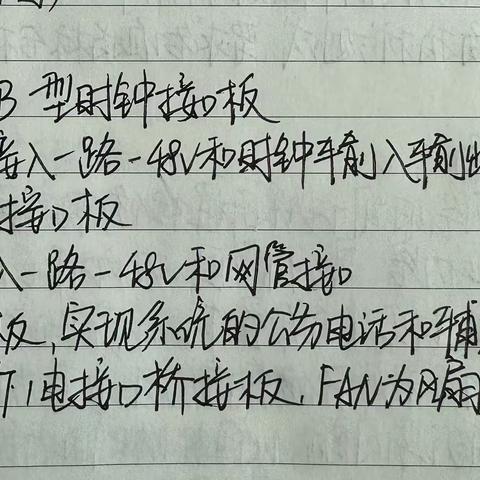 B 型时钟接口板
接入一路-48V和时钟输入输出
接口板
入一路-48V和网管接口
板,实现系统的公务电话和辅
下1电接口桥接板,FAN为风扇